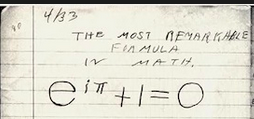 4/33
THE MOST REMARKABLE
FORMULA
IN MATH.
e^{iπ}+1=0